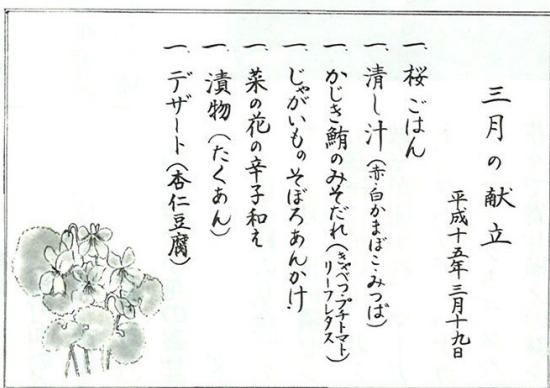 三月の献立
平成十五年三月十九日
一、桜ごはん
一、清し汁(赤・白かまぼこ・みつば)
一、かじき鮪のみそだれ(きゃべつ・プチトマト
リーフレタス)
一、じゃがいものそぼろあんかけ
一、菜の花の辛子和え
一、漬物(たくあん)
一、デザート(杏仁豆腐)